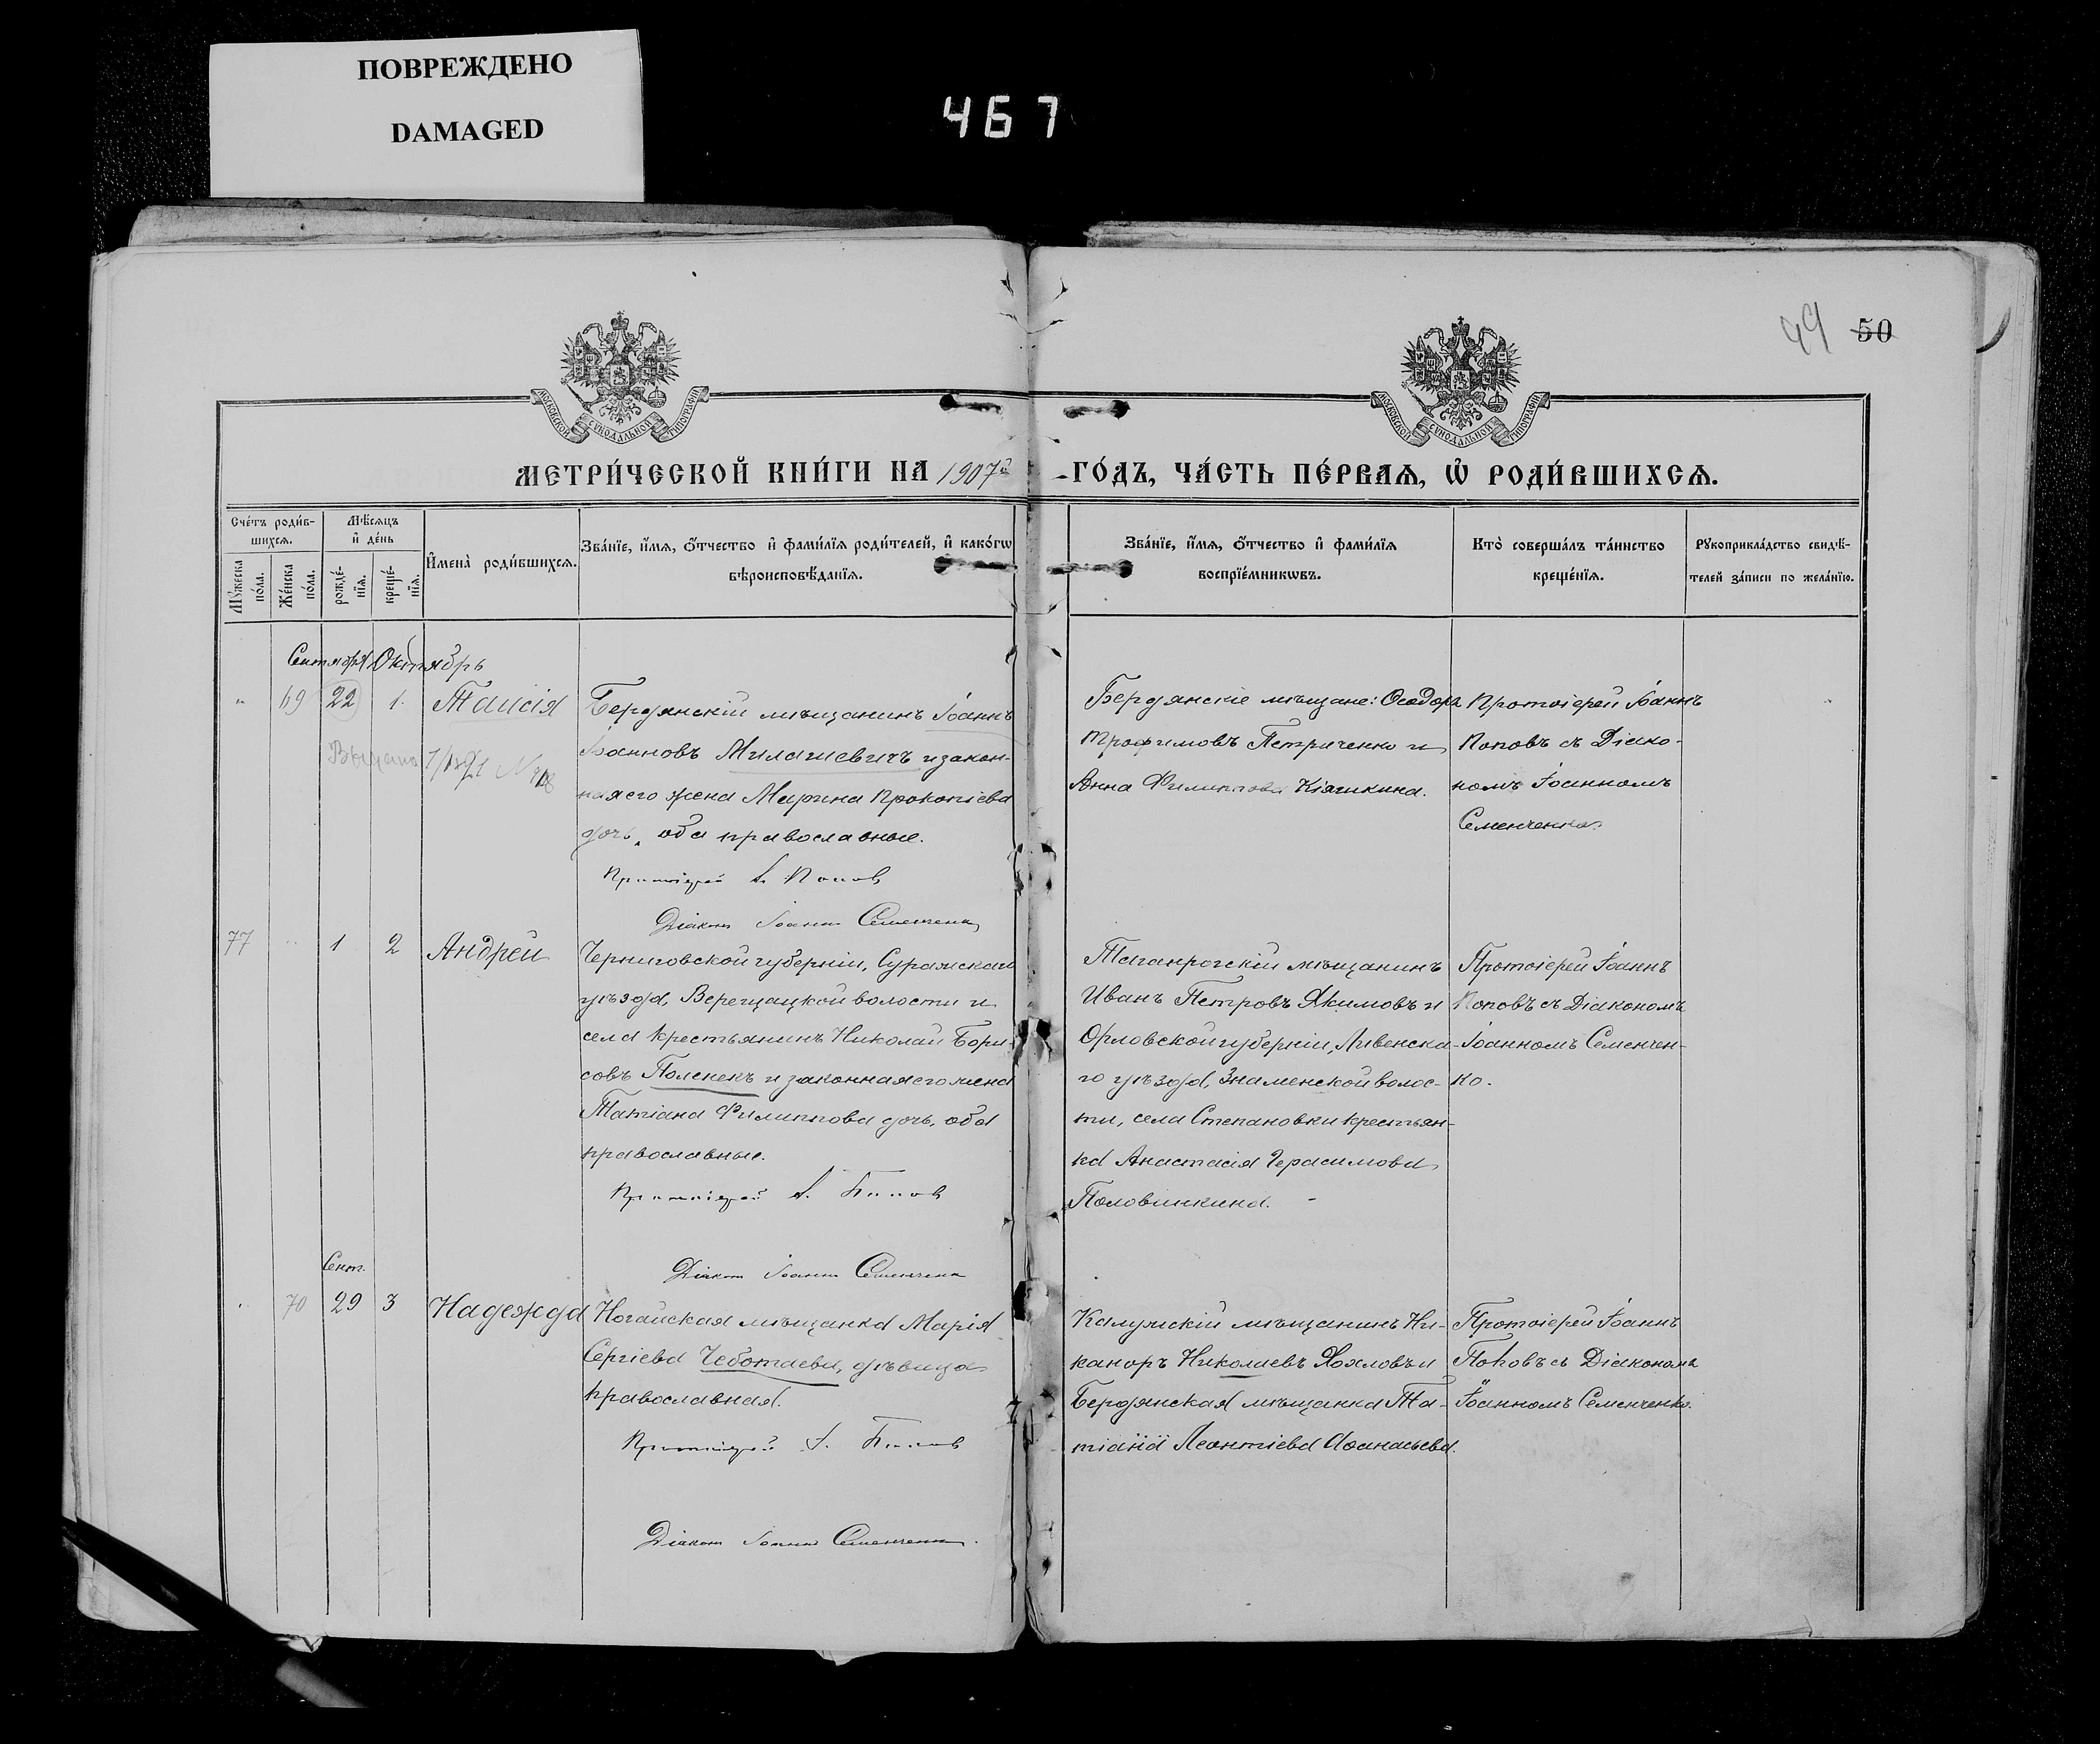 ПОВРЕЖДЕНО
DAMAGED
467
49 50
МОСКОВСКОЙ СѴНОДАЛЬНОЙ ТИПОГРАФІИ
МОСКОВСКОЙ СѴНОДАЛЬНОЙ ТИПОГРАФІИ
МЕТРИ́ЧЕСКОЙ КНИ́ГИ НА 1907й ГО́ДЪ, ЧА́СТЬ ПЕ́РВАѦ, Ѡ҆ РОДИ́ВШИХСѦ.
Сче́тъ роди́в-
шихсѧ.
Мꙋ́жеска
по́ла.
Же́нска
по́ла.
Мѣ́сѧцъ
и҆ де́нь
рожде́-
нїѧ.
креще́-
нїѧ.
И҆мена̀ роди́вшихсѧ.
Зва́нїе, и҆́мѧ, ѻ҆́тчество и҆ фами́лїѧ роди́телей, и҆ како́гѡ
вѣроисповѣ́данїѧ.
Зва́нїе, и҆́мѧ, ѻ҆́тчество и҆ фами́лїѧ
воспрїе́мникѡвъ.
Кто̀ соверша́лъ та́инство
креще́нїѧ.
Рꙋкоприкла́дство свидѣ́-
телей за́писи по жела́нїю.
Сентябрь Октябрь
" 69 22 1. Таисія
Бердянскій мѣщанинъ Іоаннъ
Іоанновъ Милашевичъ и закон-
ная его жена Марина Прокопіева
дочь, оба православные.
Протоіерей І. Попов
Діакон Іоанн Семенченко
Бердянскіе мѣщане: Ѳеодоръ
Трофимовъ Петриченко и
Анна Филиппова Кіяшкина.
Протоіерей Іоаннъ
Поповъ съ Діако-
номъ Іоанномъ
Семенченко.
Выдана
77 " 1 2 Андрей
Черниговской губерніи, Суражскаго
уѣзда, Верещацкой волости и
села крестьянинъ Николай Бори-
совъ Поленекъ и законная его жена
Татіана Филиппова дочь, оба
православные.
Протоіерей І. Попов
Діакон Іоанн Семенченко
Таганрогскій мѣщанинъ
Иванъ Петровъ Якимовъ и
Орловской губерніи, Ливенска-
го уѣзда, Знаменской волос-
ти, села Степановки крестьян-
ка Анастасія Герасимова
Половинкина.
Протоіерей Іоаннъ
Поповъ съ Діакономъ
Іоанномъ Семенчен-
ко.
Сент.
" 70 29 3 Надежда
Ногайская мѣщанка Марія
Сергіева Чеботаева, дѣвица
православная.
Протоіерей І. Попов
Діакон Іоанн Семенченко.
Калужскій мѣщанинъ Ни-
каноръ Николаевъ Хохловъ и
Бердянская мѣщанка Та-
тіана Леонтіева Аѳанасьева.
Протоіерей Іоаннъ
Поповъ съ Діакономъ
Іоанномъ Семенченко.